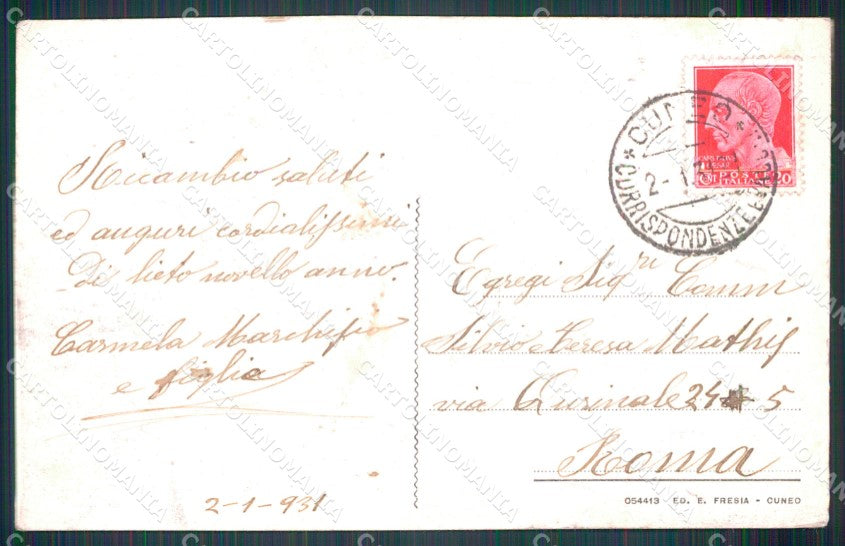 Ricambio saluti
ed auguri cordialissimi
Di lieto novello anno.
Carmela Marchisio
e figlia
2-1-931
CUNEO
CORRISPONDENZE E
2-1
POSTE
ITALIANE
20
Egregi Sigri Comm
Silvio e Teresa Mathis
via Quirinale 24 5
Roma
054413 ED. E. FRESIA - CUNEO
CARTOLINOMANIA